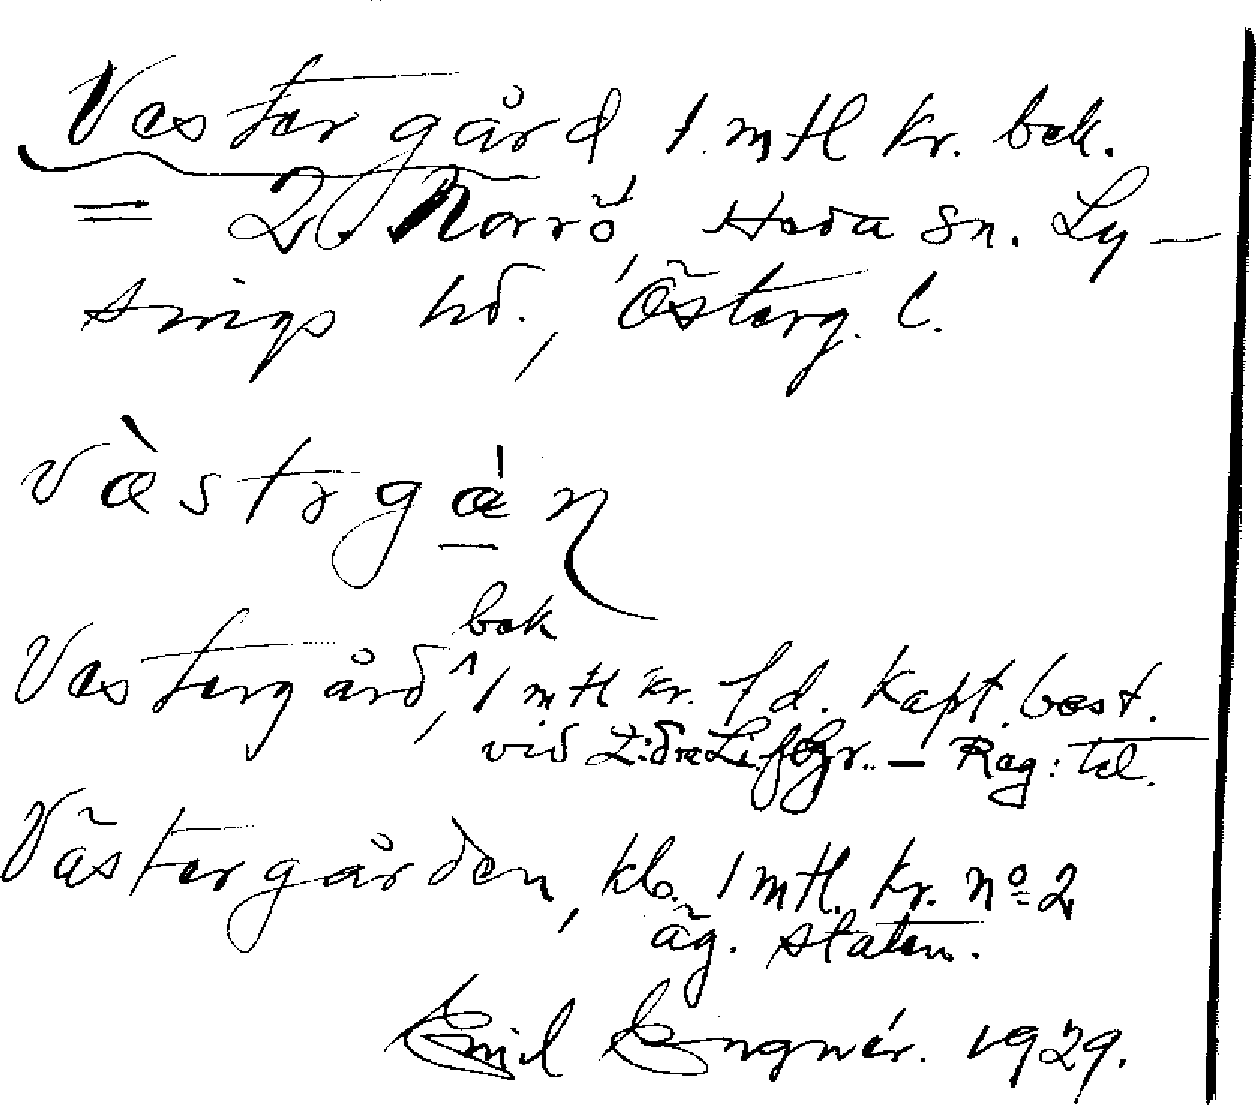 Vestergård 1 mtl kr. bok.
= 2 Norrö, Heda sn. Ly-
sings hd., Österg. l.
västrgá
bok
Vestergård, ^ 1 mtl kr. f d. Kapt. bost.
vid Lifgr. — Reg: td.
Västergården, kb. 1 mtl. kr. nº 2
äg. staten.
Emil Engnér. 1929.